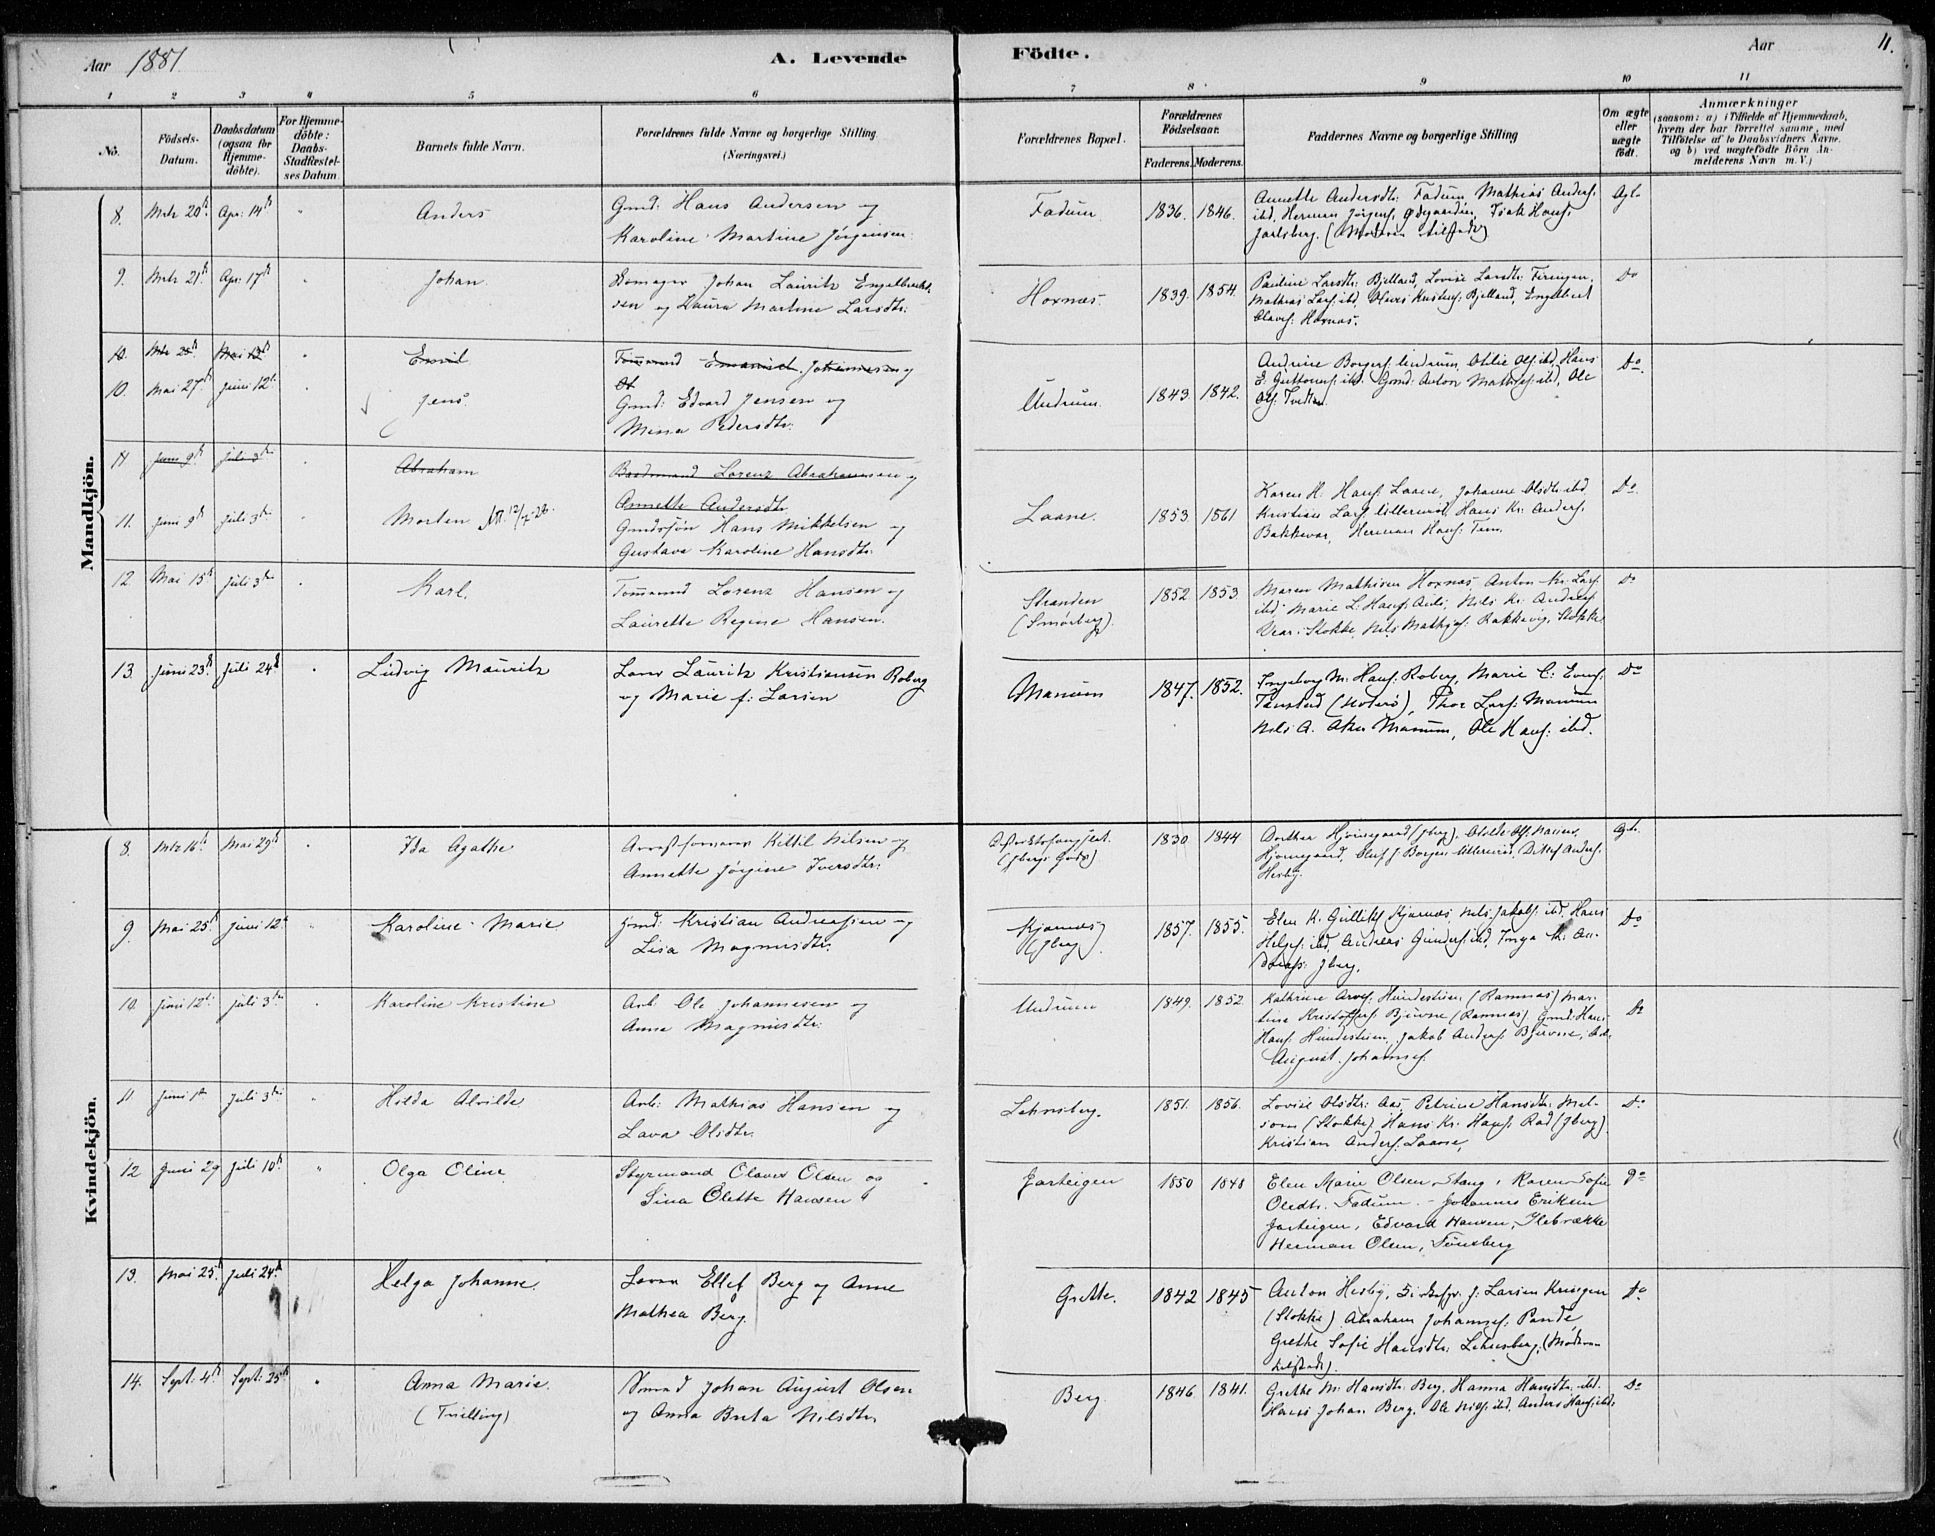 Aar 1881 A. Levende Födte. Aar 11.
1 2 3 4 5 6 7 8 9 10 11
No. Födsels-Datum. Daabsdatum (ogsaa for Hjemme-döbte). For Hjemme-döbte: Daabs-Stadfæstelses Datum. Barnets fulde Navn. Forældrenes fulde Navne og borgerlige Stilling. (Næringsvei.) Forældrenes Bopæl. Forældrenes Födselsaar. Faderens. Moderens. Faddernes Navne og borgerlige Stilling Om ægte eller uægte födt. Anmærkninger (saasom: a) i Tilfælde af Hjemmedaab, hvem der har forrettet samme, med Tilföielse af to Daabsvidners Navne. og b) ved uægtefödte Börn Anmelderens Navn m. V.)
Mandkjön.
8. Mrts 20de Apr: 14de " Anders Gmd: Hans Andersen og
Karoline Martine Jørgensen. Fadum 1836. 1846. Annette Andersdtr: Fadum, Mathias Anders:
ibd, Herman Jørgens:
Jarlsberg. Ægte
9. Mrts 21de Apr: 17de Johan. Johan Lauritz Engelbrecht-
sen og Laura Martine Larsdtr: Hoxnæs. 1839. 1854. Pauline Larsdtr: Bjelland, Lovise Larsdtr:
Mathias Lars: ibd, Kristens: Bjelland, Engelbret
Olaves: Hoxnæs. Do
10. Mrts Mai Emil Tømmermd Emanuel Johannesen og
10. Mai 27de Juni 12te Jens. Gmd: Edvard Jensen og
Mina Pedersdtr: Undrum. 1843. 1842. Andrine Borgers: Undrum, Otilie Ols: ibd, Hans
E. Guttorms: ibd. Gmd: Anton Mathias: ibd, Ole
Ols: Tvedten. Do.
11 Juni 9de Juli 3die Abraham Baadsmand Lorenz Abrahamsen og
Annette Andersdtr
11. Juni 9de Juli 3die Morten Gmdssøn Hans Mikkelsen og
Gustava Karoline Hansdtr: Laane. 1853. 1861 Karen H. Hans: Laane, Johanne Olsdtr: ibd
Kristian Lars: Hans Kr: Anders:
Bakkevar, Herman Hans: Tem. Do.
12. Mai 15de Juli 3die Karl. Tømmermd Lorenz Hansen og
Laurette Regine Hansen. Stranden
(Smørberg). 1852 1853. Maren Mathisen Hoxnæs Anton Kr: Lars:
ibd Marie L. Hans: Auli, Nils Kr: Anders:
Vear: Stokke, Nils Mathias: Rakkevig, Stokke Do
13. Juni 23de Juli 24de Ludvig Mauritz Lauritz Kristiansen Roberg
og Marie f: Larsen Manum 1847. 1852. Ingeborg M: Hans: Roberg, Marie C: Evens:
(Noterø), Thor Lars: Manum
Nils A. Aker Manum, Ole Hans: ibd. Do
Kvindekjön.
8. Mrts 16de Mai 29de Ida Agathe Arrestforvarer Kittil Nilsen og
Annette Jørgine Iversdtr: Distriktsfængslet.
1830 1844 Dorthea Hjernegaard
Hjernegaard, Oluf J Borgen Detlef Anders:
Hesby. Ægte.
9. Mai 25de Juni 12te Karoline Marie Gmd: Kristian Andreassen og
Lisa Magnusdtr: Kjærnæs
(Jberg) 1857. 1855. Elen K. Gulliks: Kjærnæs, Nils Jakobs: ibd, Hans
Helges: ibd, Andreas Gunders: ibd, Inga M: An-
dreas: Jberg. Do
10. Juni 12te Juli 3die Karoline Kristine Arb. Ole Johannesen og
Anna Magnusdtr: Undrum 1849. 1852. Kathrine Arves: Hundestuen (Ramnæs) Mar-
tine Kristoffers: Bjerune (Ramnæs). Gmd: Hans
Hans: Hundestuen, Jakob Anders: Bjerune,
August Johannes: Do
11 Juni 1ste Juli 3die " Hilda Alvilda. Arb: Mathias Hansen og
Lava Olsdtr. Lehnsberg. 1851. 1856. Lovise Olsdtr: Aas, Petrine Hansdtr: Mel-
som (Stokke) Hans Kr: Hans: Rad (Jberg).
Kristian Anders: Laane. Do
12 Juni 29 Juli 10de " Olga Oline Styrmand Olaves Olsen og
Sina Olette Hansen Jarteigen 1850 1848 Elen Marie Olsen Stang, Karen Sofie
Olsdtr. Fadum Johannes Eriksen
Jarteigen, Edvard Hansen, Ilebrække
Herman Olsen, Tønsberg Do
13. Mai 25de Juli 24de Helga Johanne. Ellef Berg og Anne
Mathea Berg Grette. 1842 1845 Anton Hesby, J: Larsen Kringen
(Stokke) Abraham Johannes: Pande
Grethe Sofie Hansdtr: Lehnsberg, (Moderen
tilstede). Do
14. Sept: 4de Sept: 25de " Anna Marie.
(Tvilling) Smed Johan August Olsen
og Anna Brita Nilsdtr. Berg 1846 1841. Grethe M: Hansdtr: Berg, Hanna Hansdtr: ibd.
Hans Johan Berg, Ole Nils: ibd, Anders Hans: ibd. Do